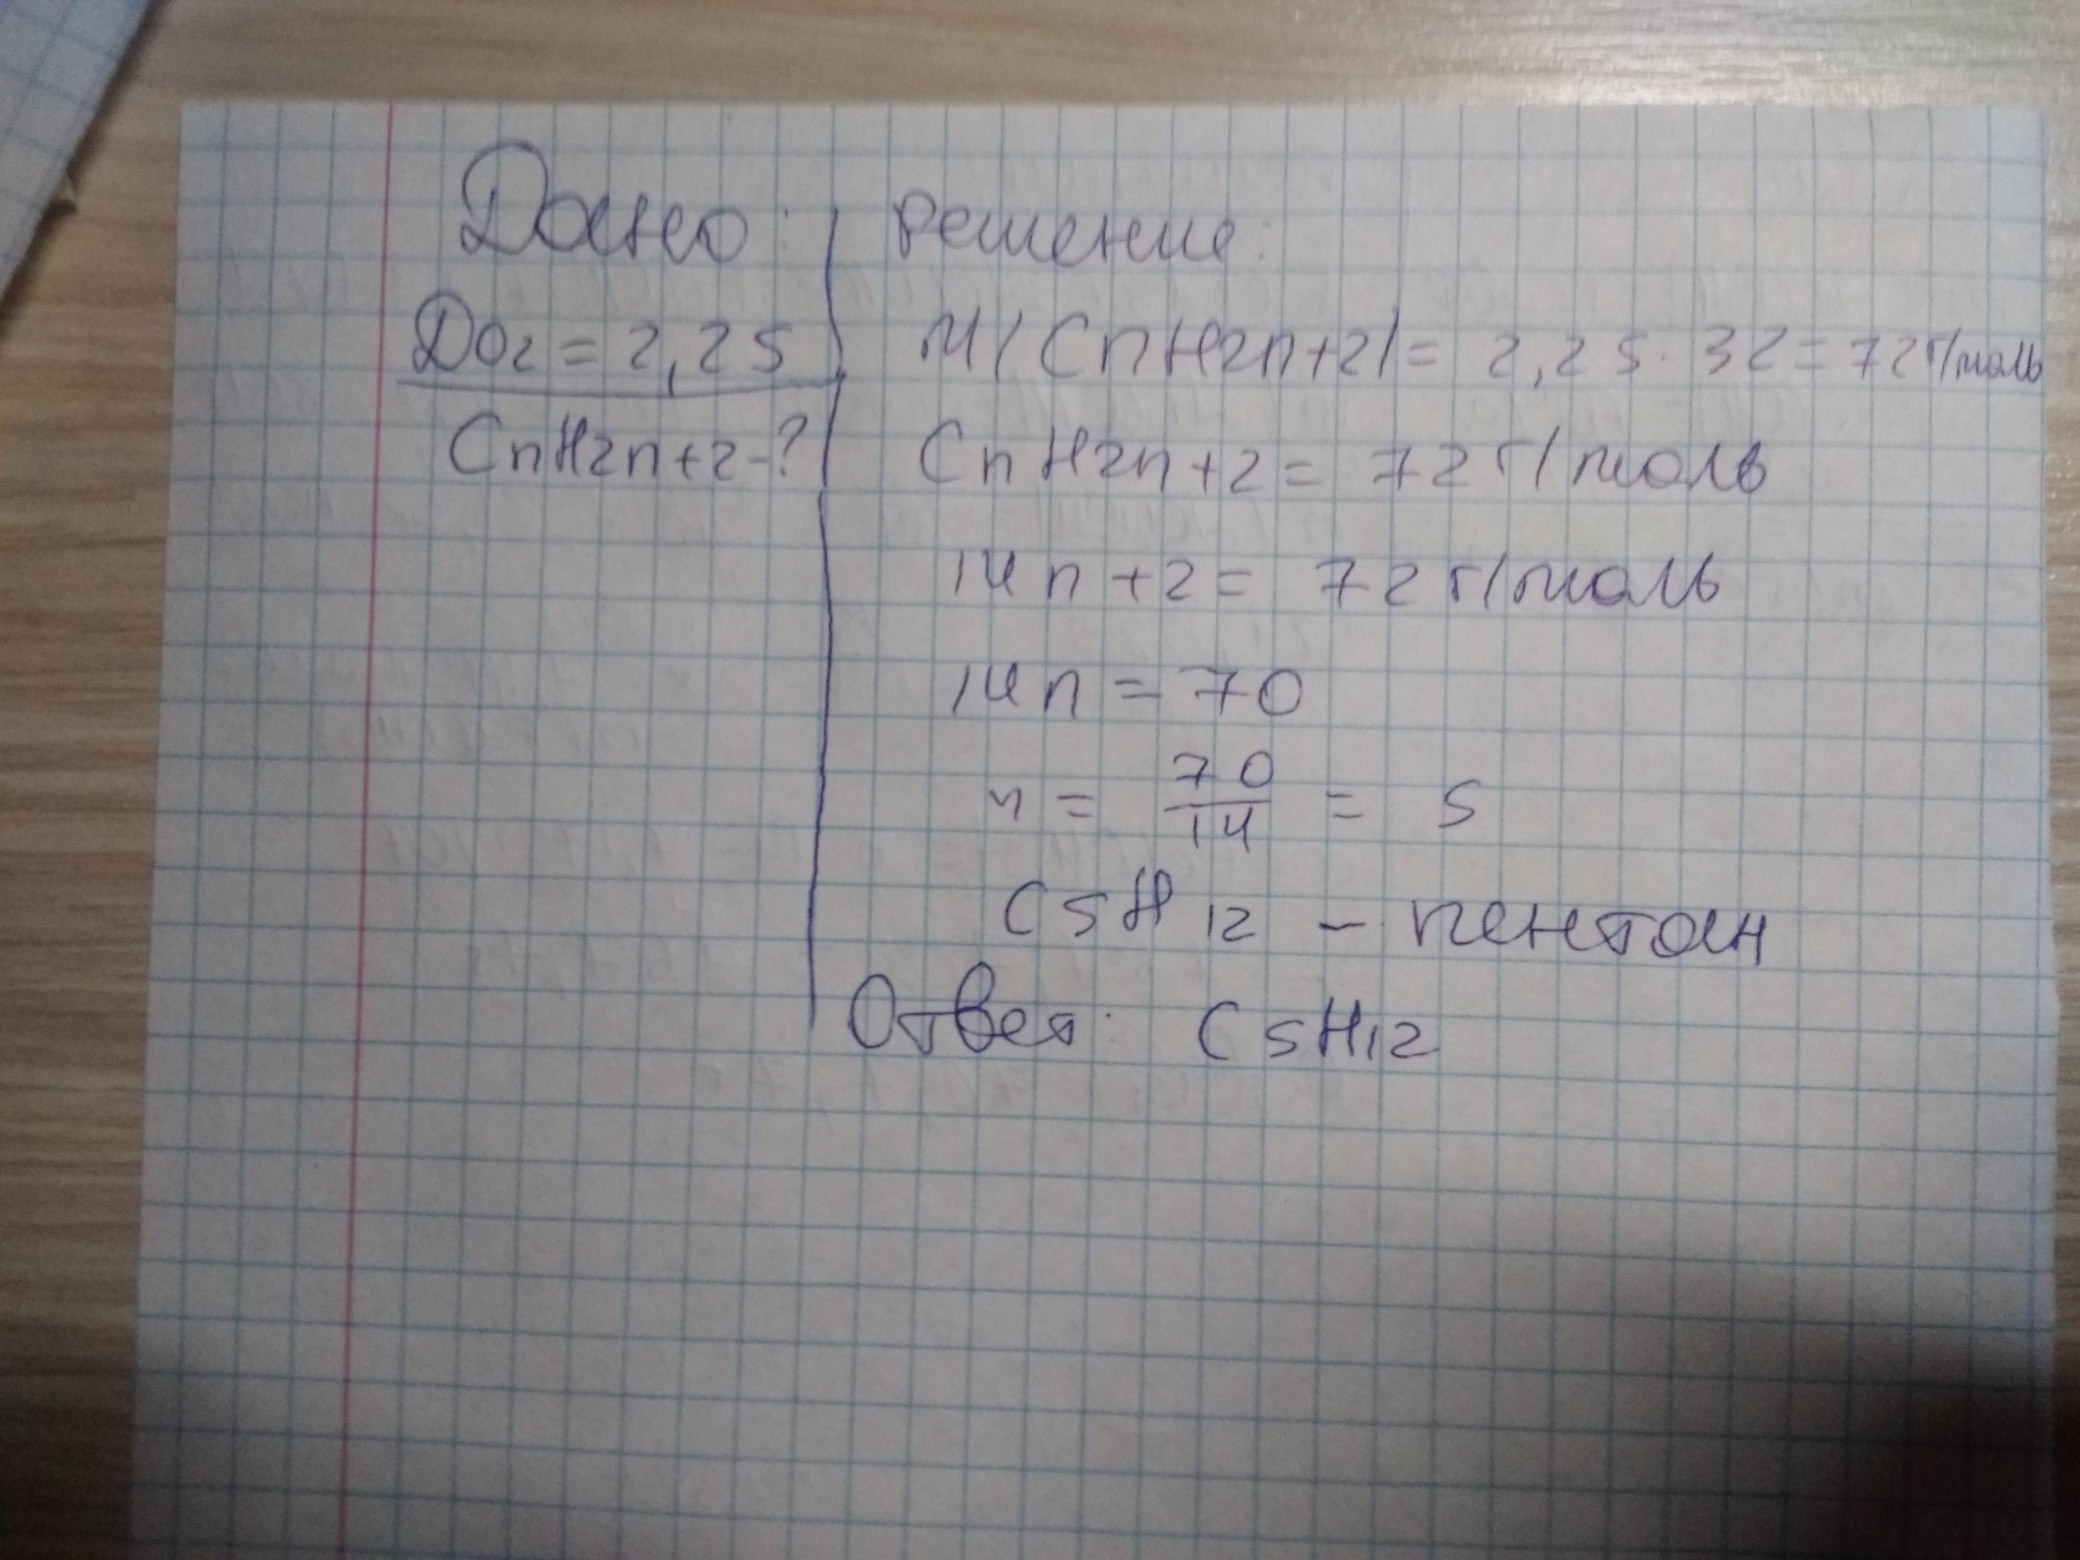 Дано:
DO2 = 2,25
CnH2n+2-?
Решение:
M(CnH2n+2)= 2,25·32=72г/моль
CnH2n+2= 72г/моль
14n+2= 72г/моль
14n=70
n = 70/14 = 5
C5H12 – пентан
Ответ: C5H12